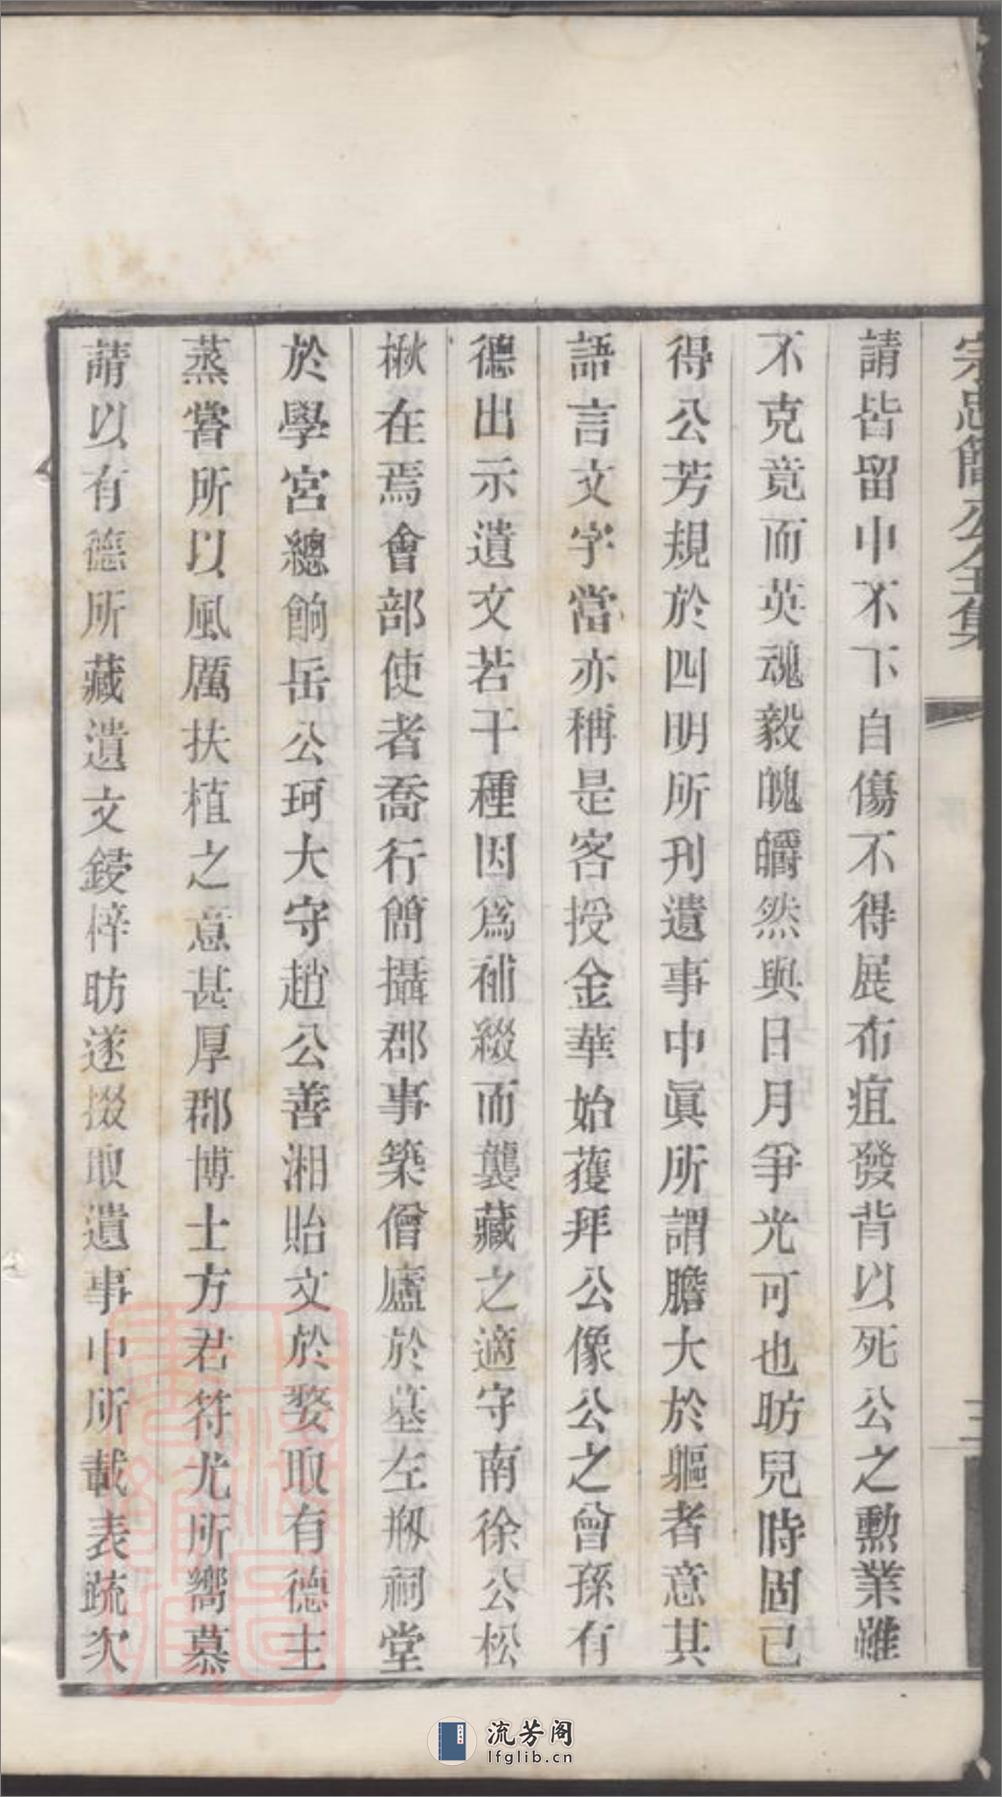 宗忠簡公全集
請皆留中不下自傷不得展布疽發背以死公之勳業雖
不克竟而英魂毅魄皭然與日月爭光可也昉兒時固已
得公芳規於四明所刋遺事中眞所謂膽大於軀者意其
語言文字當亦稱是客授金華始獲拜公像公之曾孫有
德出示遺文若干種因爲補綴而襲藏之適守南徐公松
楸在焉會部使者喬行簡攝郡事築僧廬於墓左剏祠堂
於學宮總餉岳公珂大守趙公善湘貽文於婺取有德主
蒸嘗所以風厲扶植之意甚厚郡博士方君符尤所嚮慕
請以有德所藏遺文鋟梓昉遂掇取遺事中所載表疏次
流芳阁
lfglib.cn